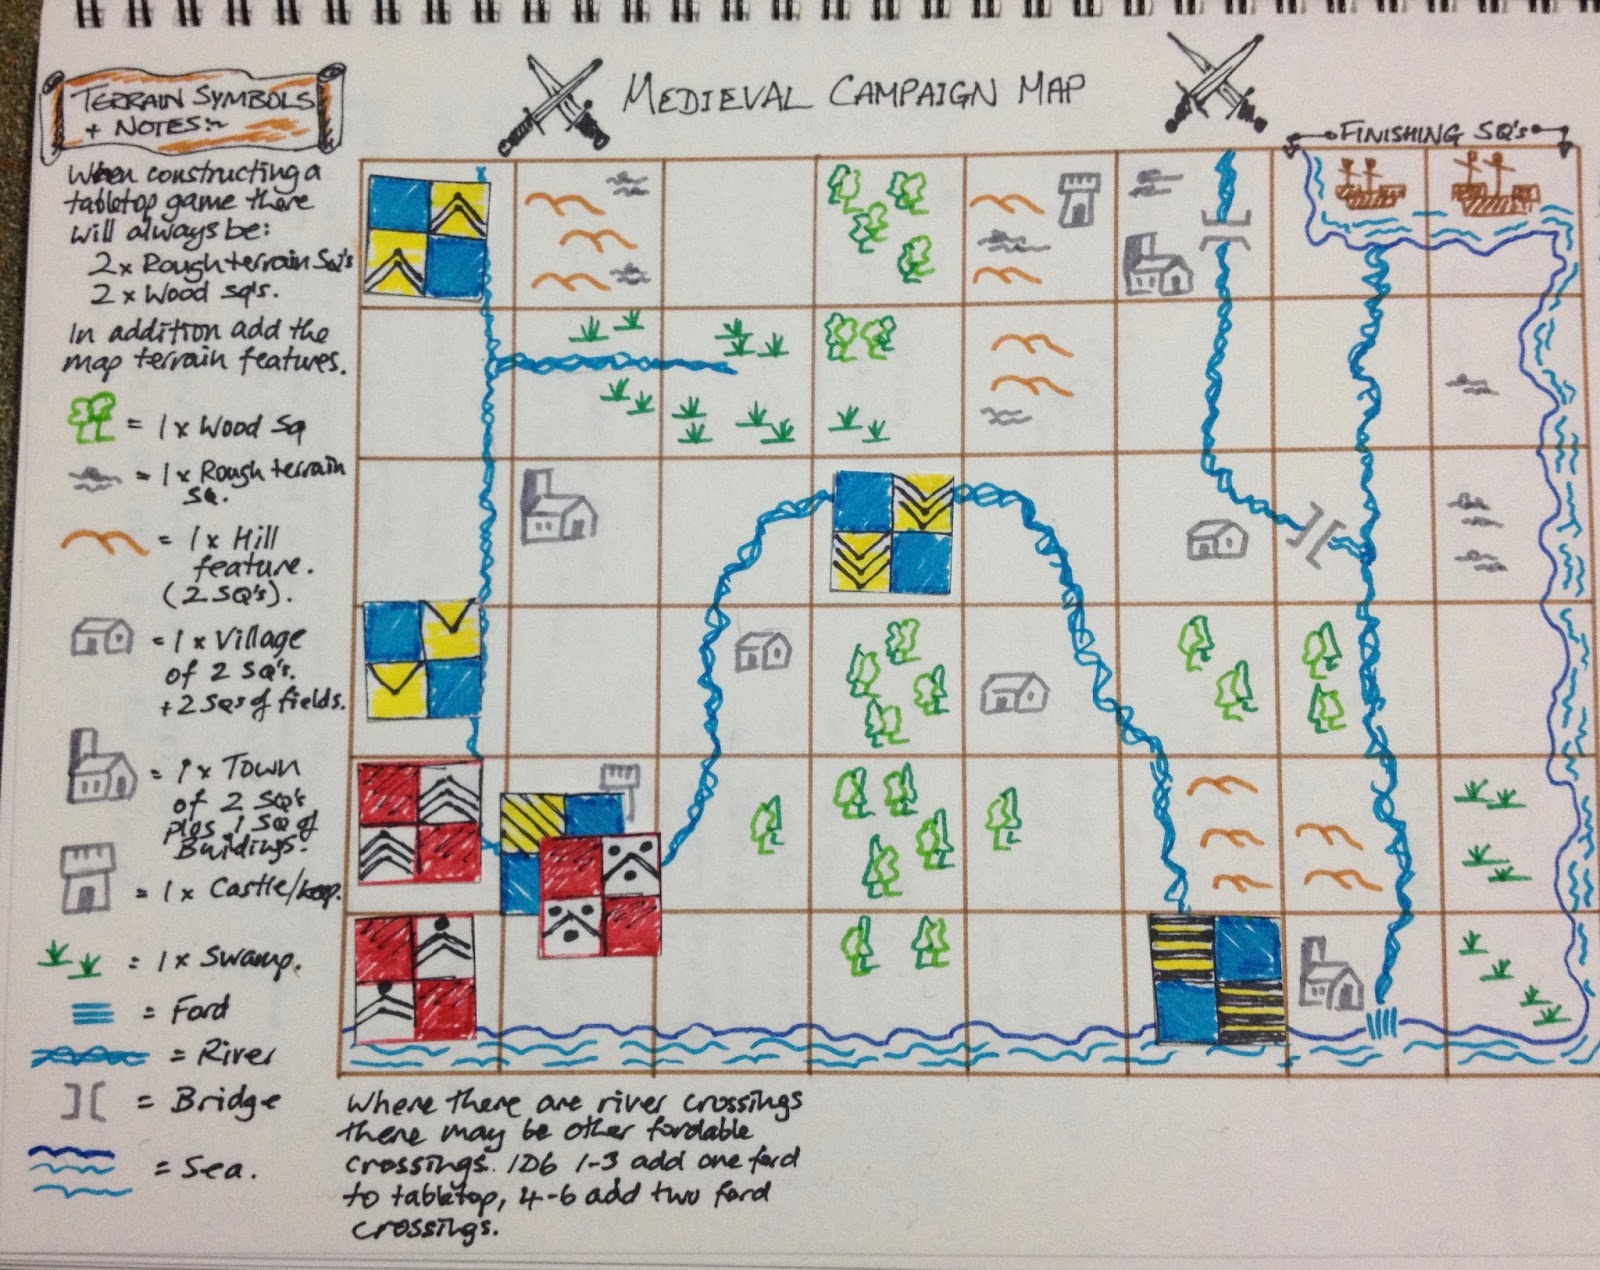 MEDIEVAL CAMPAIGN MAP
FINISHING SQ's
TERRAIN SYMBOLS
+ NOTES:~
When constructing a
tabletop game there
will always be:
2 x Rough terrain SQ's
2 x Wood sq's.
In addition add the
map terrain features.
= 1 x Wood Sq
= 1 x Rough terrain
SQ.
= 1 x Hill
feature.
(2 SQ's).
= 1 x Village
of 2 SQ's.
+ 2 SQs of fields.
= 1 x Town
of 2 SQ's
plos 1 SQ of
Buildings.
= 1 x Castle/keep.
= 1 x Swamp.
= Ford
= River
= Bridge
= Sea.
Where there are river crossings
there may be other fordable
crossings. 1D6 1-3 add one ford
to tabletop, 4-6 add two ford
crossings.